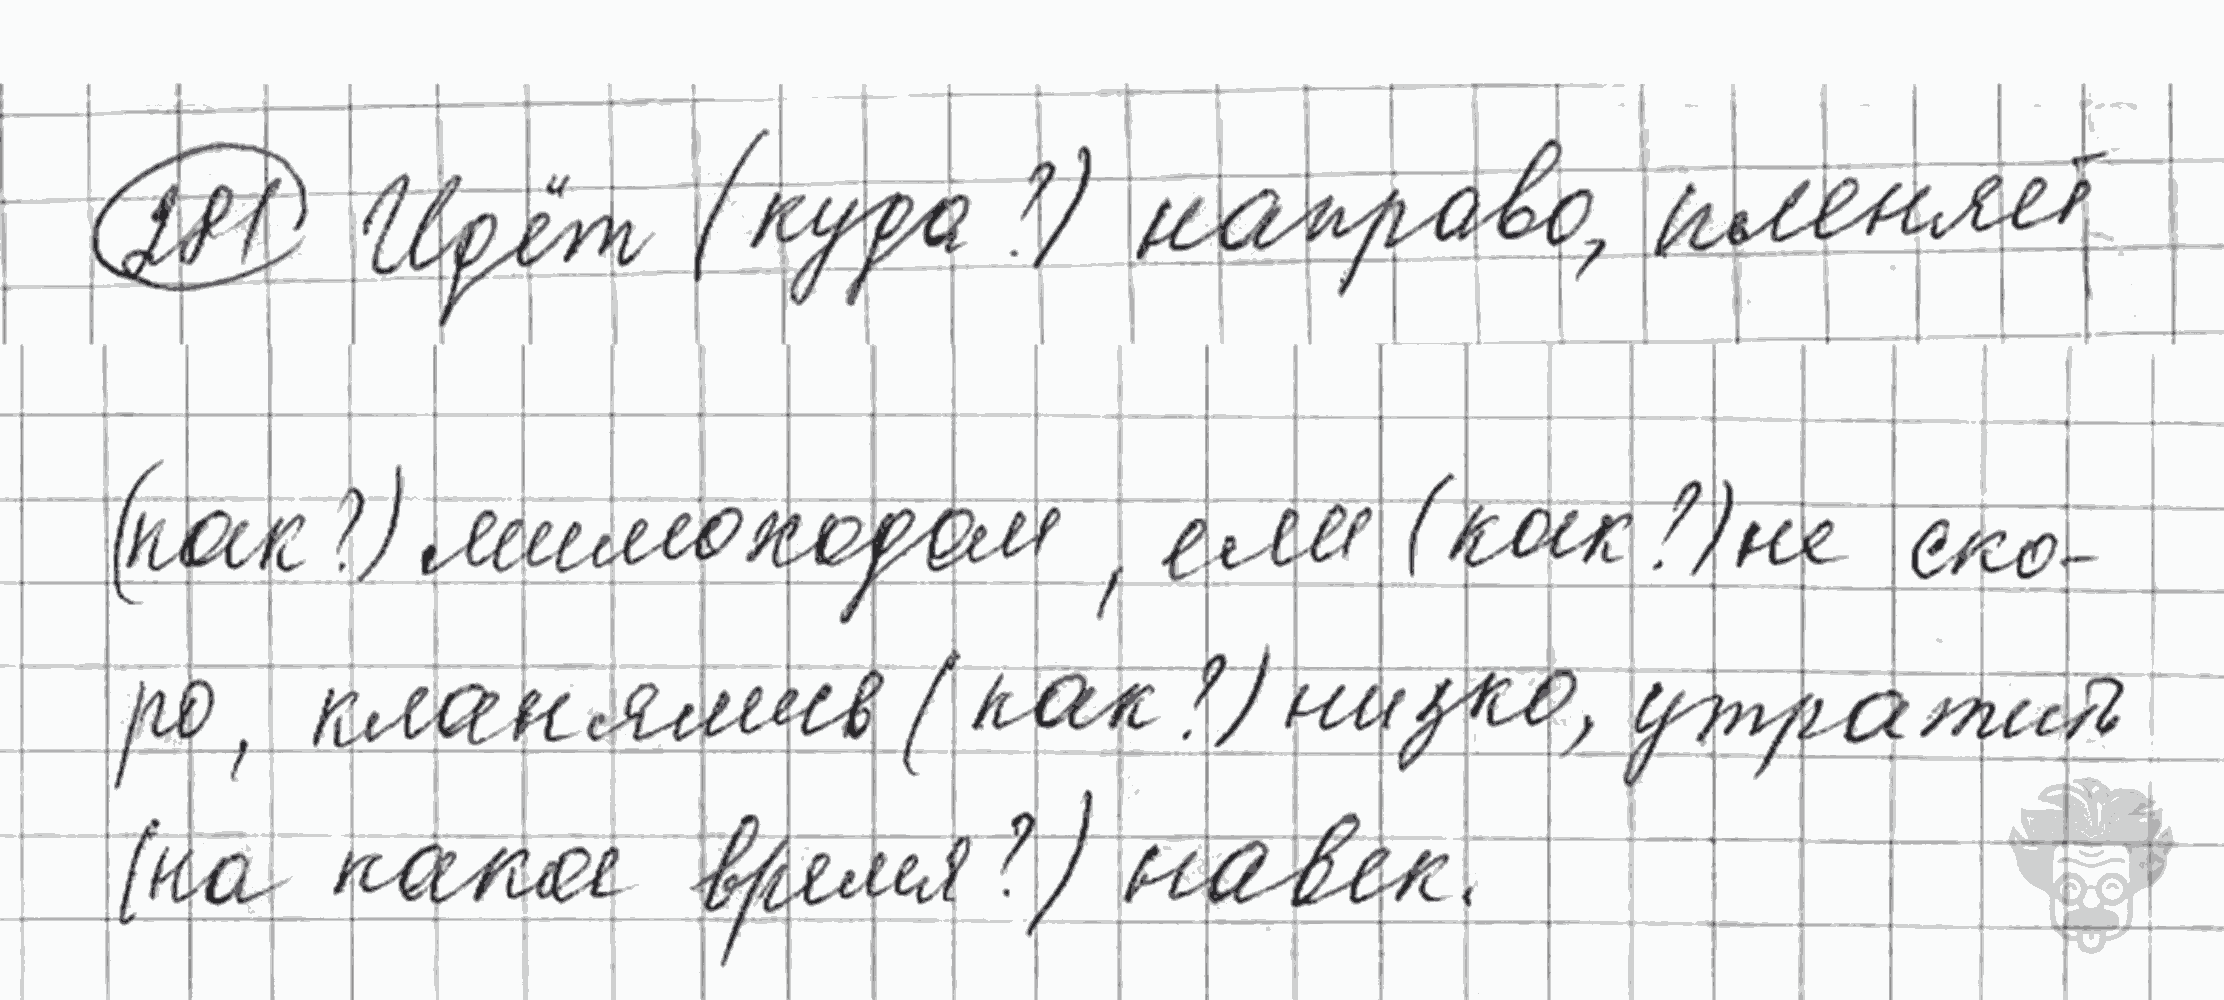 281 Идёт (куда?) направо, пленяет
(как?) мимоходом, ели (как?) не ско-
ро, кланялись (как?) низко, утратит
(на какое время?) навек.